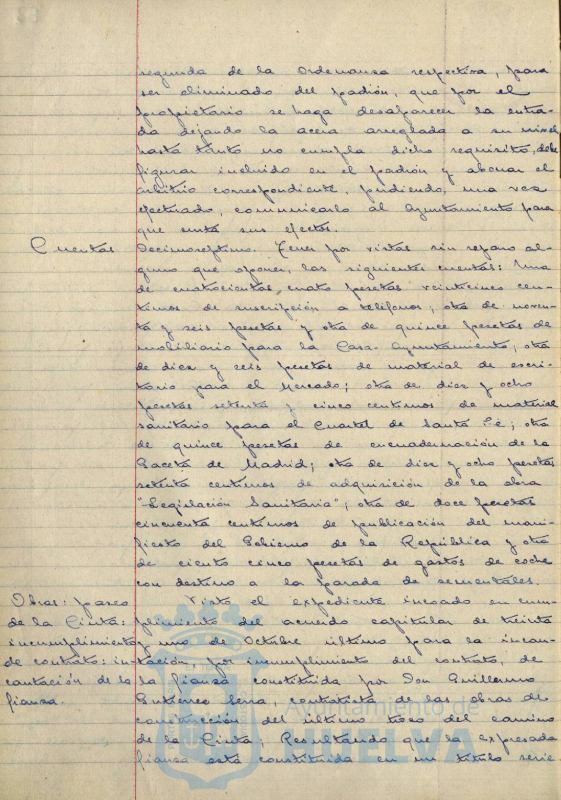 segunda de la Ordenanza respectiva, para
ser eliminado del padrón, que por el
propietario se haga desaparecer la entra-
da dejando la acera arreglada a su nivel
hasta tanto no cumpla dicho requisito, debe
figurar incluido en el padrón y abonar el
arbitrio correspondiente, pudiendo, una vez
efectuado, comunicarlo al Ayuntamiento para
que surta sus efectos.
Cuentas Decimoséptimo. Tener por vistas sin reparo al-
guno que oponer, las siguientes cuentas: Una
de cuatrocientas cuatro pesetas veinticinco cen-
timos de suscripción a teléfonos; otra de noven-
ta y seis pesetas y otra de quince pesetas de
mobiliario para la Casa-Ayuntamiento; otra
de diez y seis pesetas de material de escri-
torio para el Mercado; otra de diez y ocho
pesetas setenta y cinco centimos de material
sanitario para el Cuartel de Santa Fé; otra
de quince pesetas de encuadernación de la
Gaceta de Madrid; otra de diez y ocho pesetas
setenta centimos de adquisición de la obra
"Legislación Sanitaria"; otra de doce pesetas
cincuenta centimos de publicación del mani-
fiesto del Gobierno de la República y otra
de ciento cinco pesetas de gastos de coche
con destino a la parada de sementales.
Obras: paseo Visto el expediente incoado en cum-
de la Cinta: plimiento del acuerdo capitular de treinta
incumplimiento y uno de Octubre último para la incau-
de contrato: in- tación, por incumplimiento del contrato, de
cautación de la la fianza constituida por Don Guillermo
fianza. Gutierrez Serra, contratista de las obras de
construcción del último trozo del camino
de la Cinta; Resultando que la expresada
fianza está constituida en un título serie
Ayuntamiento de
HUELVA